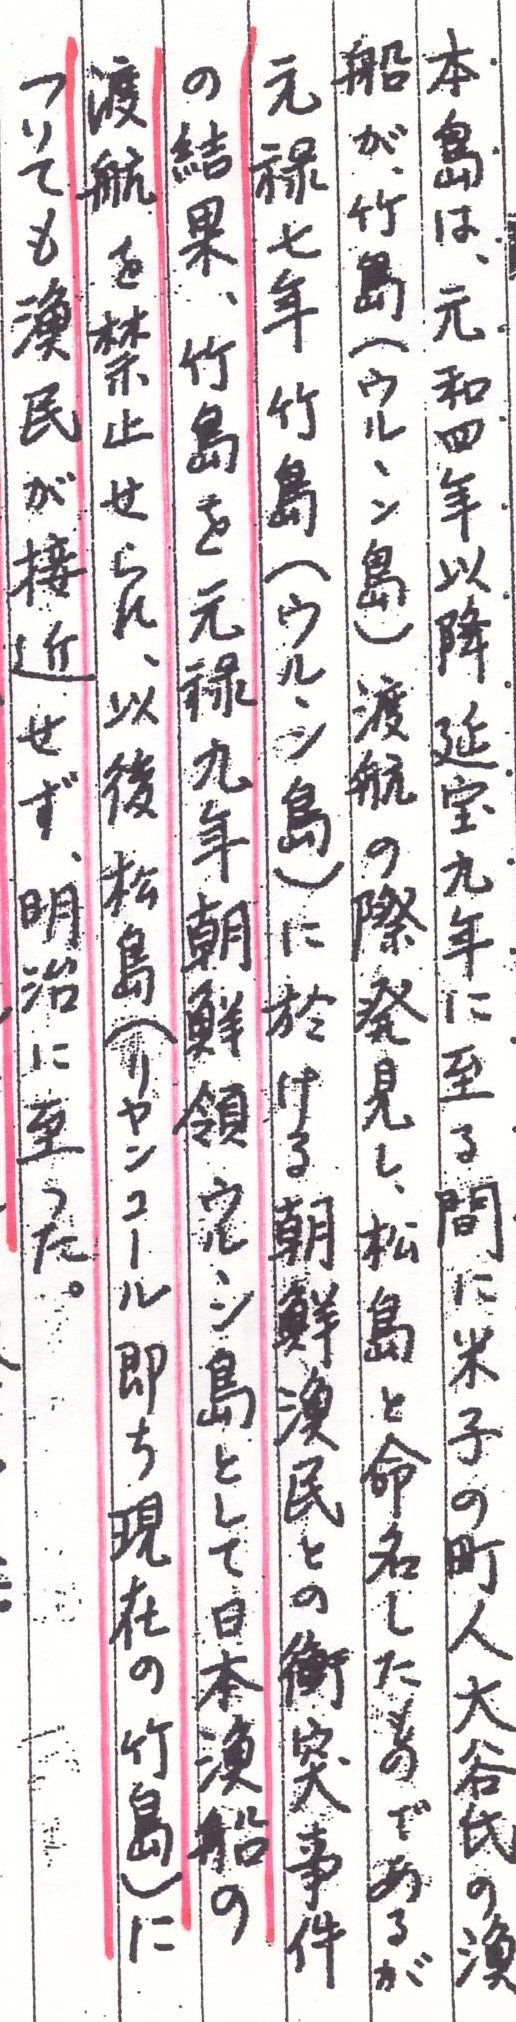 本島は、元和四年以降延宝九年に至る間に米子の町人大谷氏の漁
船が、竹島(ウルヽン島)渡航の際発見し、松島と命名したものであるが
元禄七年竹島(ウルヽン島)に於ける朝鮮漁民との衝突事件
の結果、竹島を元禄九年朝鮮領ウルヽン島として日本漁船の
渡航を禁止せられ、以後松島(リヤンコール即ち現在の竹島)に
つりても漁民が接近せず、明治に至った。